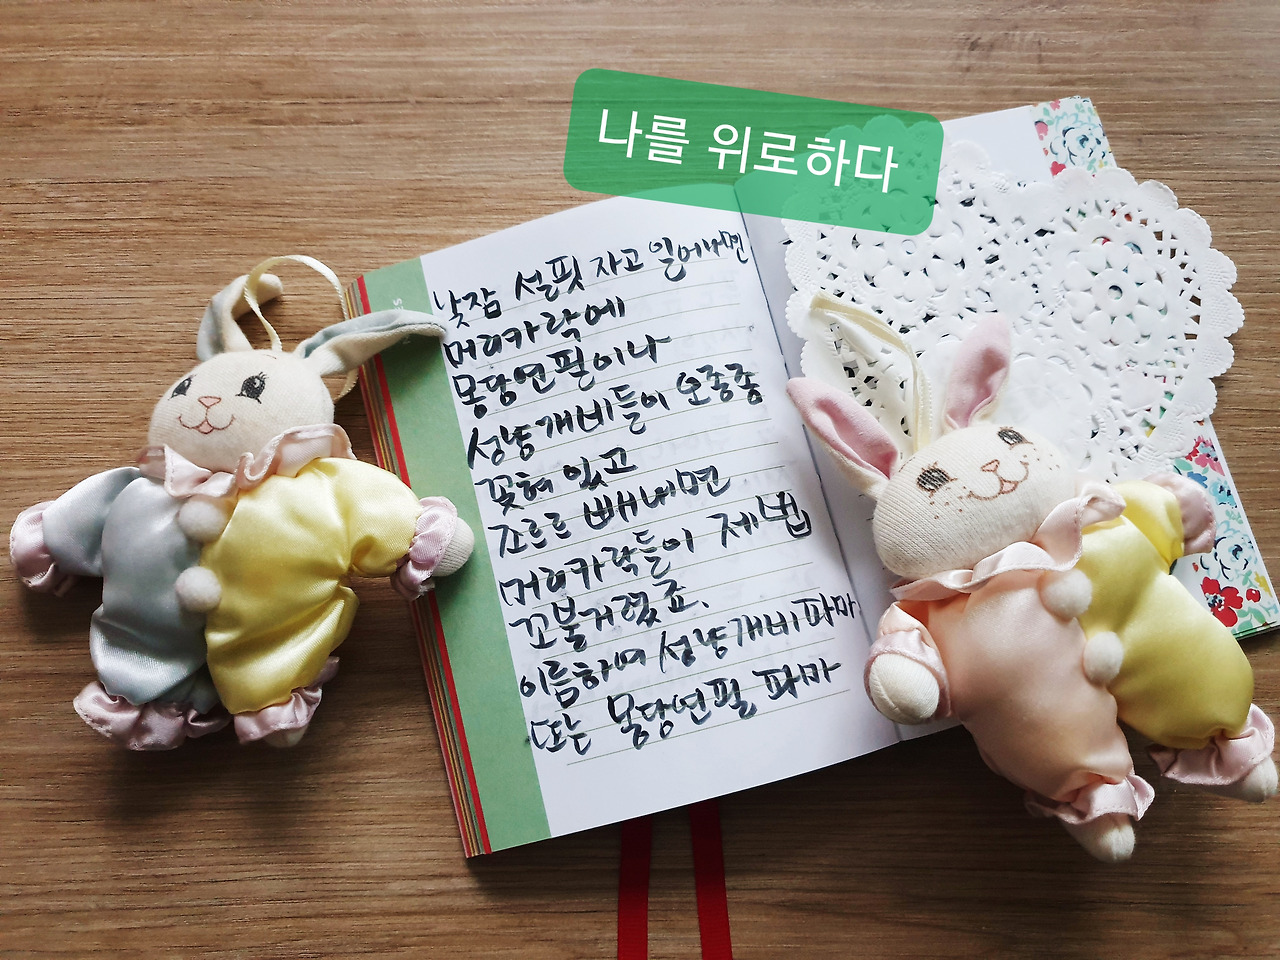 나를 위로하다
낮잠 설핏 자고 일어나면
머리카락에
몽당연필이나
성냥개비들이 오종종
꽂혀 있고
조르르 빼내면
머리카락들이 제법
꼬불거렸죠.
이름하여 성냥개비파마
또는 몽당연필 파마